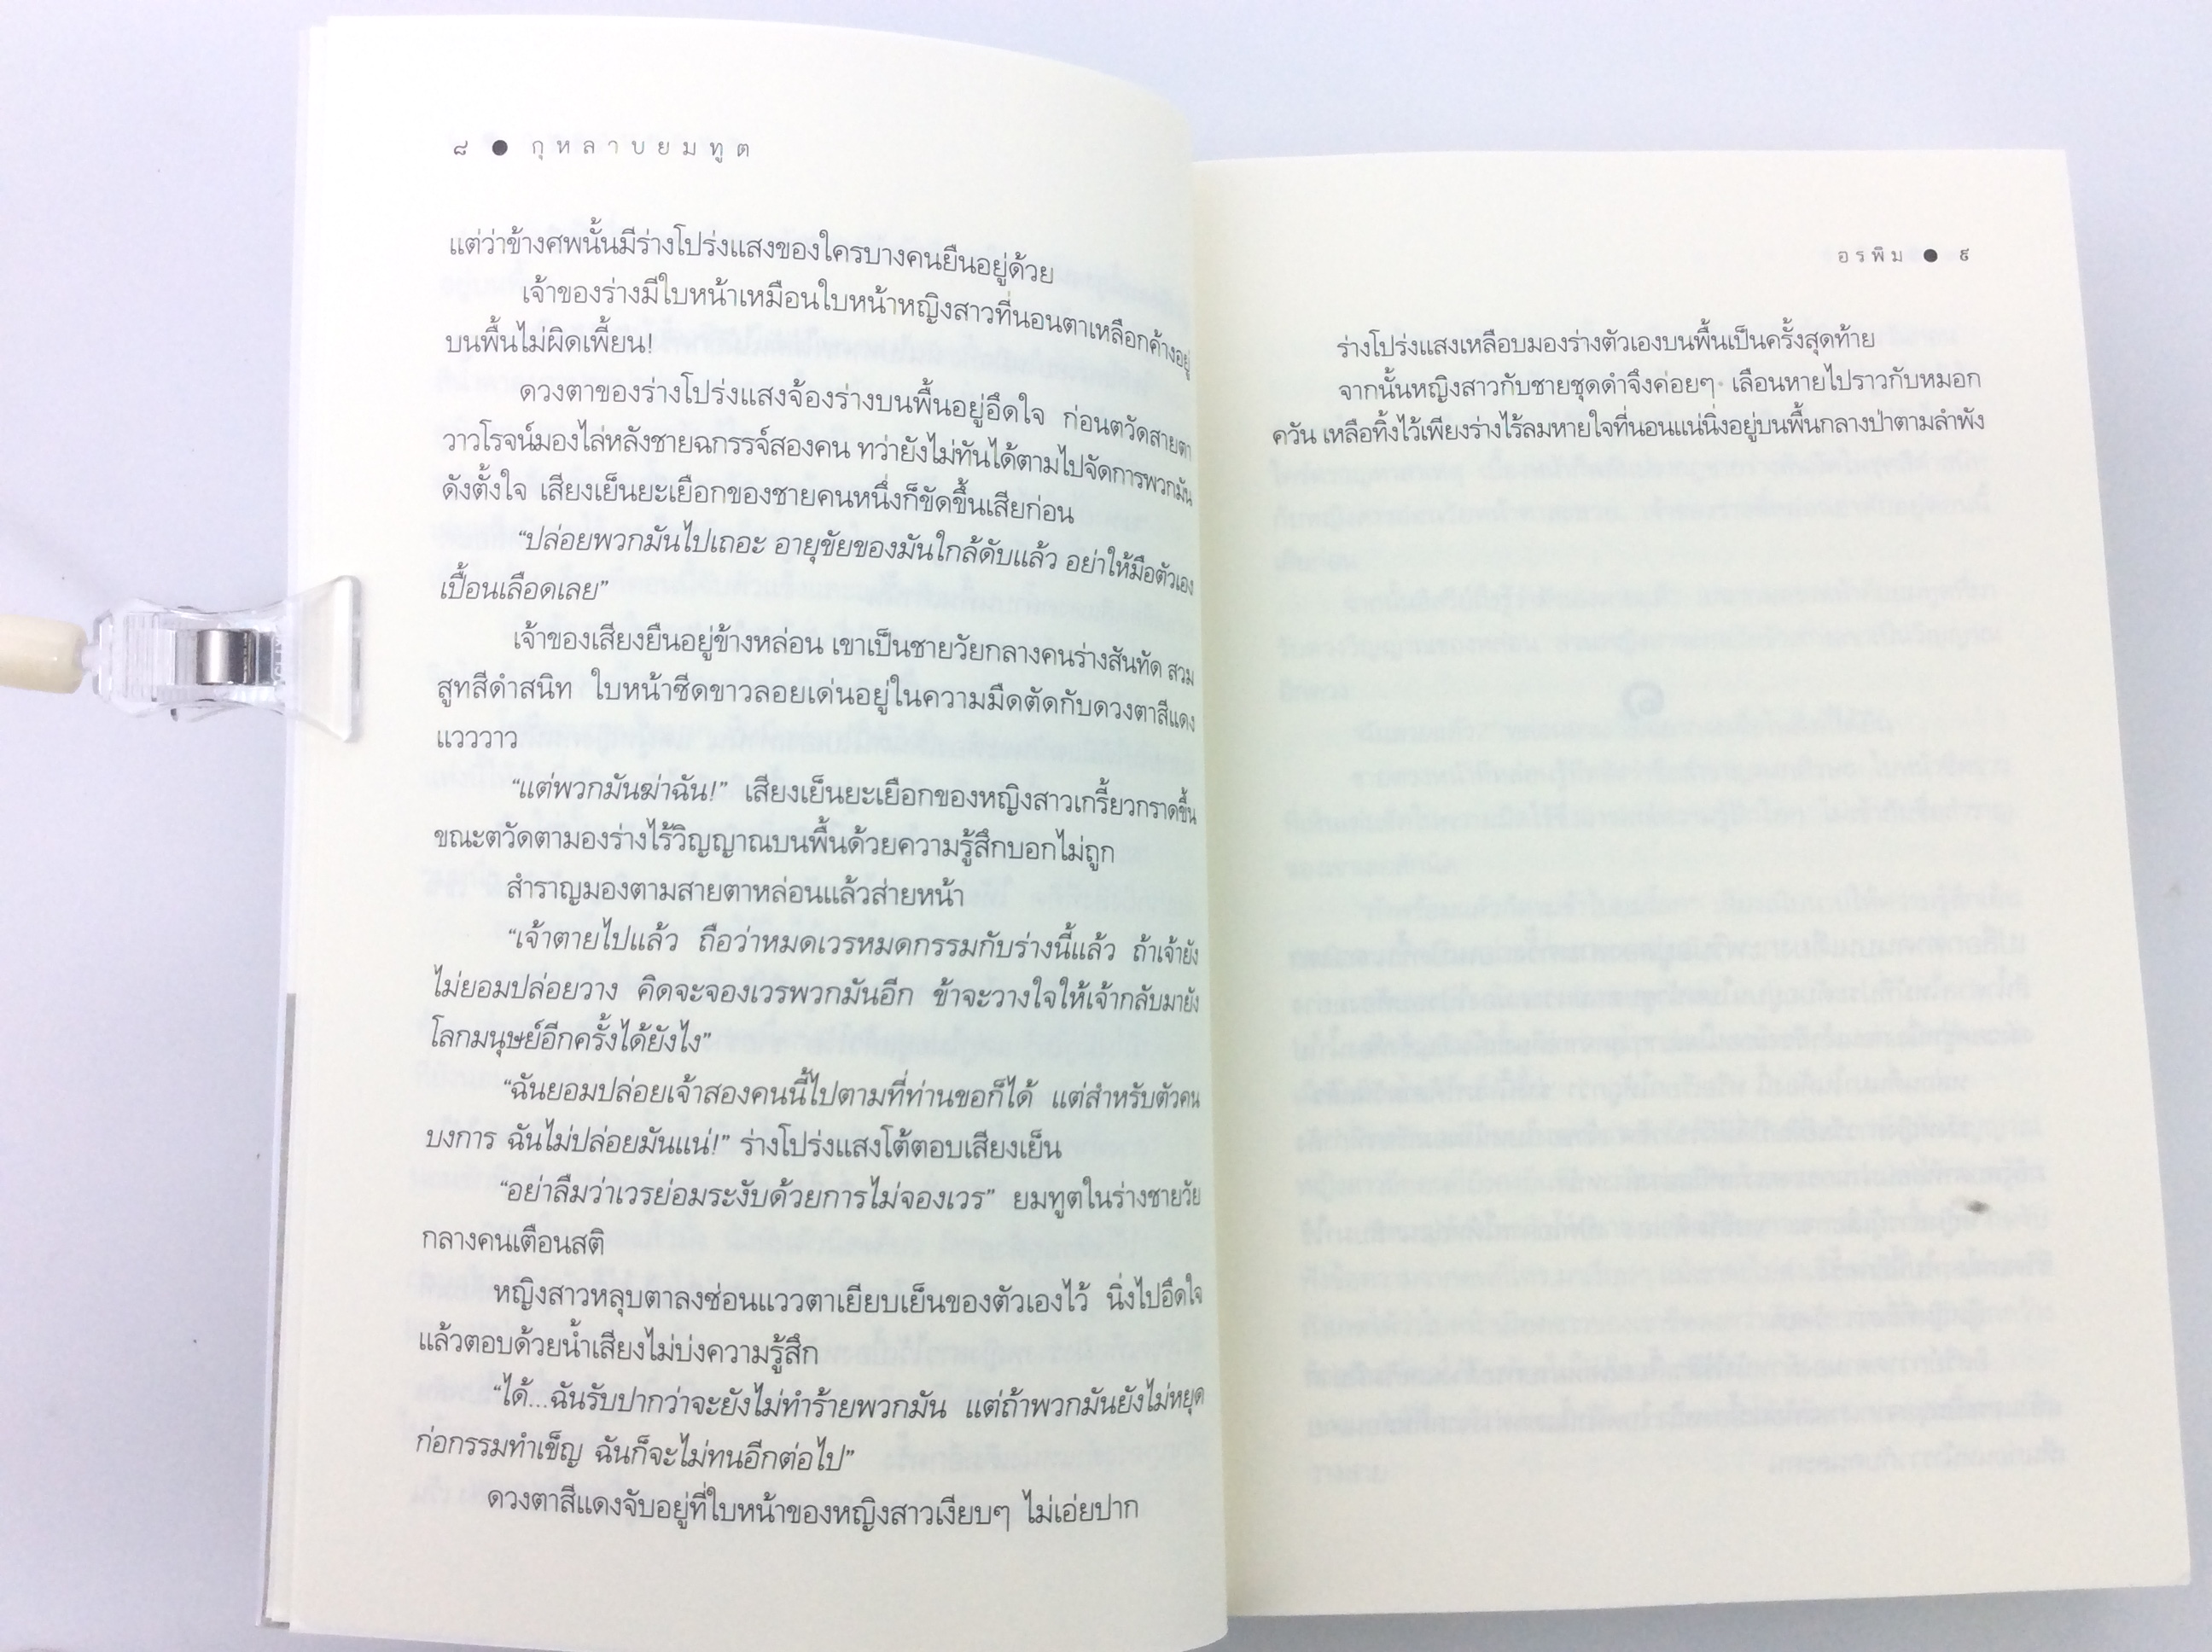 ๘ ● กุหลาบยมทูต
แต่ว่าข้างศพนั้นมีร่างโปร่งแสงของใครบางคนยืนอยู่ด้วย
เจ้าของร่างมีใบหน้าเหมือนใบหน้าหญิงสาวที่นอนตาเหลือกค้างอยู่
บนพื้นไม่ผิดเพี้ยน!
ดวงตาของร่างโปร่งแสงจ้องร่างบนพื้นอยู่อึดใจ ก่อนตวัดสายตา
วาวโรจน์มองไล่หลังชายฉกรรจ์สองคน ทว่ายังไม่ทันได้ตามไปจัดการพวกมัน
ดังตั้งใจ เสียงเย็นยะเยือกของชายคนหนึ่งก็ขัดขึ้นเสียก่อน
“ปล่อยพวกมันไปเถอะ อายุขัยของมันใกล้ดับแล้ว อย่าให้มือตัวเอง
เปื้อนเลือดเลย”
เจ้าของเสียงยืนอยู่ข้างหล่อน เขาเป็นชายวัยกลางคนร่างสันทัด สวม
สูทสีดำสนิท ใบหน้าซีดขาวลอยเด่นอยู่ในความมืดตัดกับดวงตาสีแดง
แวววาว
“แต่พวกมันฆ่าฉัน!” เสียงเย็นยะเยือกของหญิงสาวเกรี้ยวกราดขึ้น
ขณะตวัดตามองร่างไร้วิญญาณบนพื้นด้วยความรู้สึกบอกไม่ถูก
สำราญมองตามสายตาหล่อนแล้วส่ายหน้า
“เจ้าตายไปแล้ว ถือว่าหมดเวรหมดกรรมกับร่างนี้แล้ว ถ้าเจ้ายัง
ไม่ยอมปล่อยวาง คิดจะจองเวรพวกมันอีก ข้าจะวางใจให้เจ้ากลับมายัง
โลกมนุษย์อีกครั้งได้ยังไง”
“ฉันยอมปล่อยเจ้าสองคนนี้ไปตามที่ท่านขอก็ได้ แต่สำหรับตัวคน
บงการ ฉันไม่ปล่อยมันแน่!” ร่างโปร่งแสงโต้ตอบเสียงเย็น
“อย่าลืมว่าเวรย่อมระงับด้วยการไม่จองเวร” ยมทูตในร่างชายวัย
กลางคนเตือนสติ
หญิงสาวหลุบตาลงซ่อนแววตาเยียบเย็นของตัวเองไว้ นิ่งไปอึดใจ
แล้วตอบด้วยน้ำเสียงไม่บ่งความรู้สึก
“ได้...ฉันรับปากว่าจะยังไม่ทำร้ายพวกมัน แต่ถ้าพวกมันยังไม่หยุด
ก่อกรรมทำเข็ญ ฉันก็จะไม่ทนอีกต่อไป”
ดวงตาสีแดงจับอยู่ที่ใบหน้าของหญิงสาวเงียบๆ ไม่เอ่ยปาก
อรพิม ● ๙
ร่างโปร่งแสงเหลือบมองร่างตัวเองบนพื้นเป็นครั้งสุดท้าย
จากนั้นหญิงสาวกับชายชุดดำจึงค่อยๆ เลือนหายไปราวกับหมอก
ควัน เหลือทิ้งไว้เพียงร่างไร้ลมหายใจที่นอนแน่นิ่งอยู่บนพื้นกลางป่าตามลำพัง